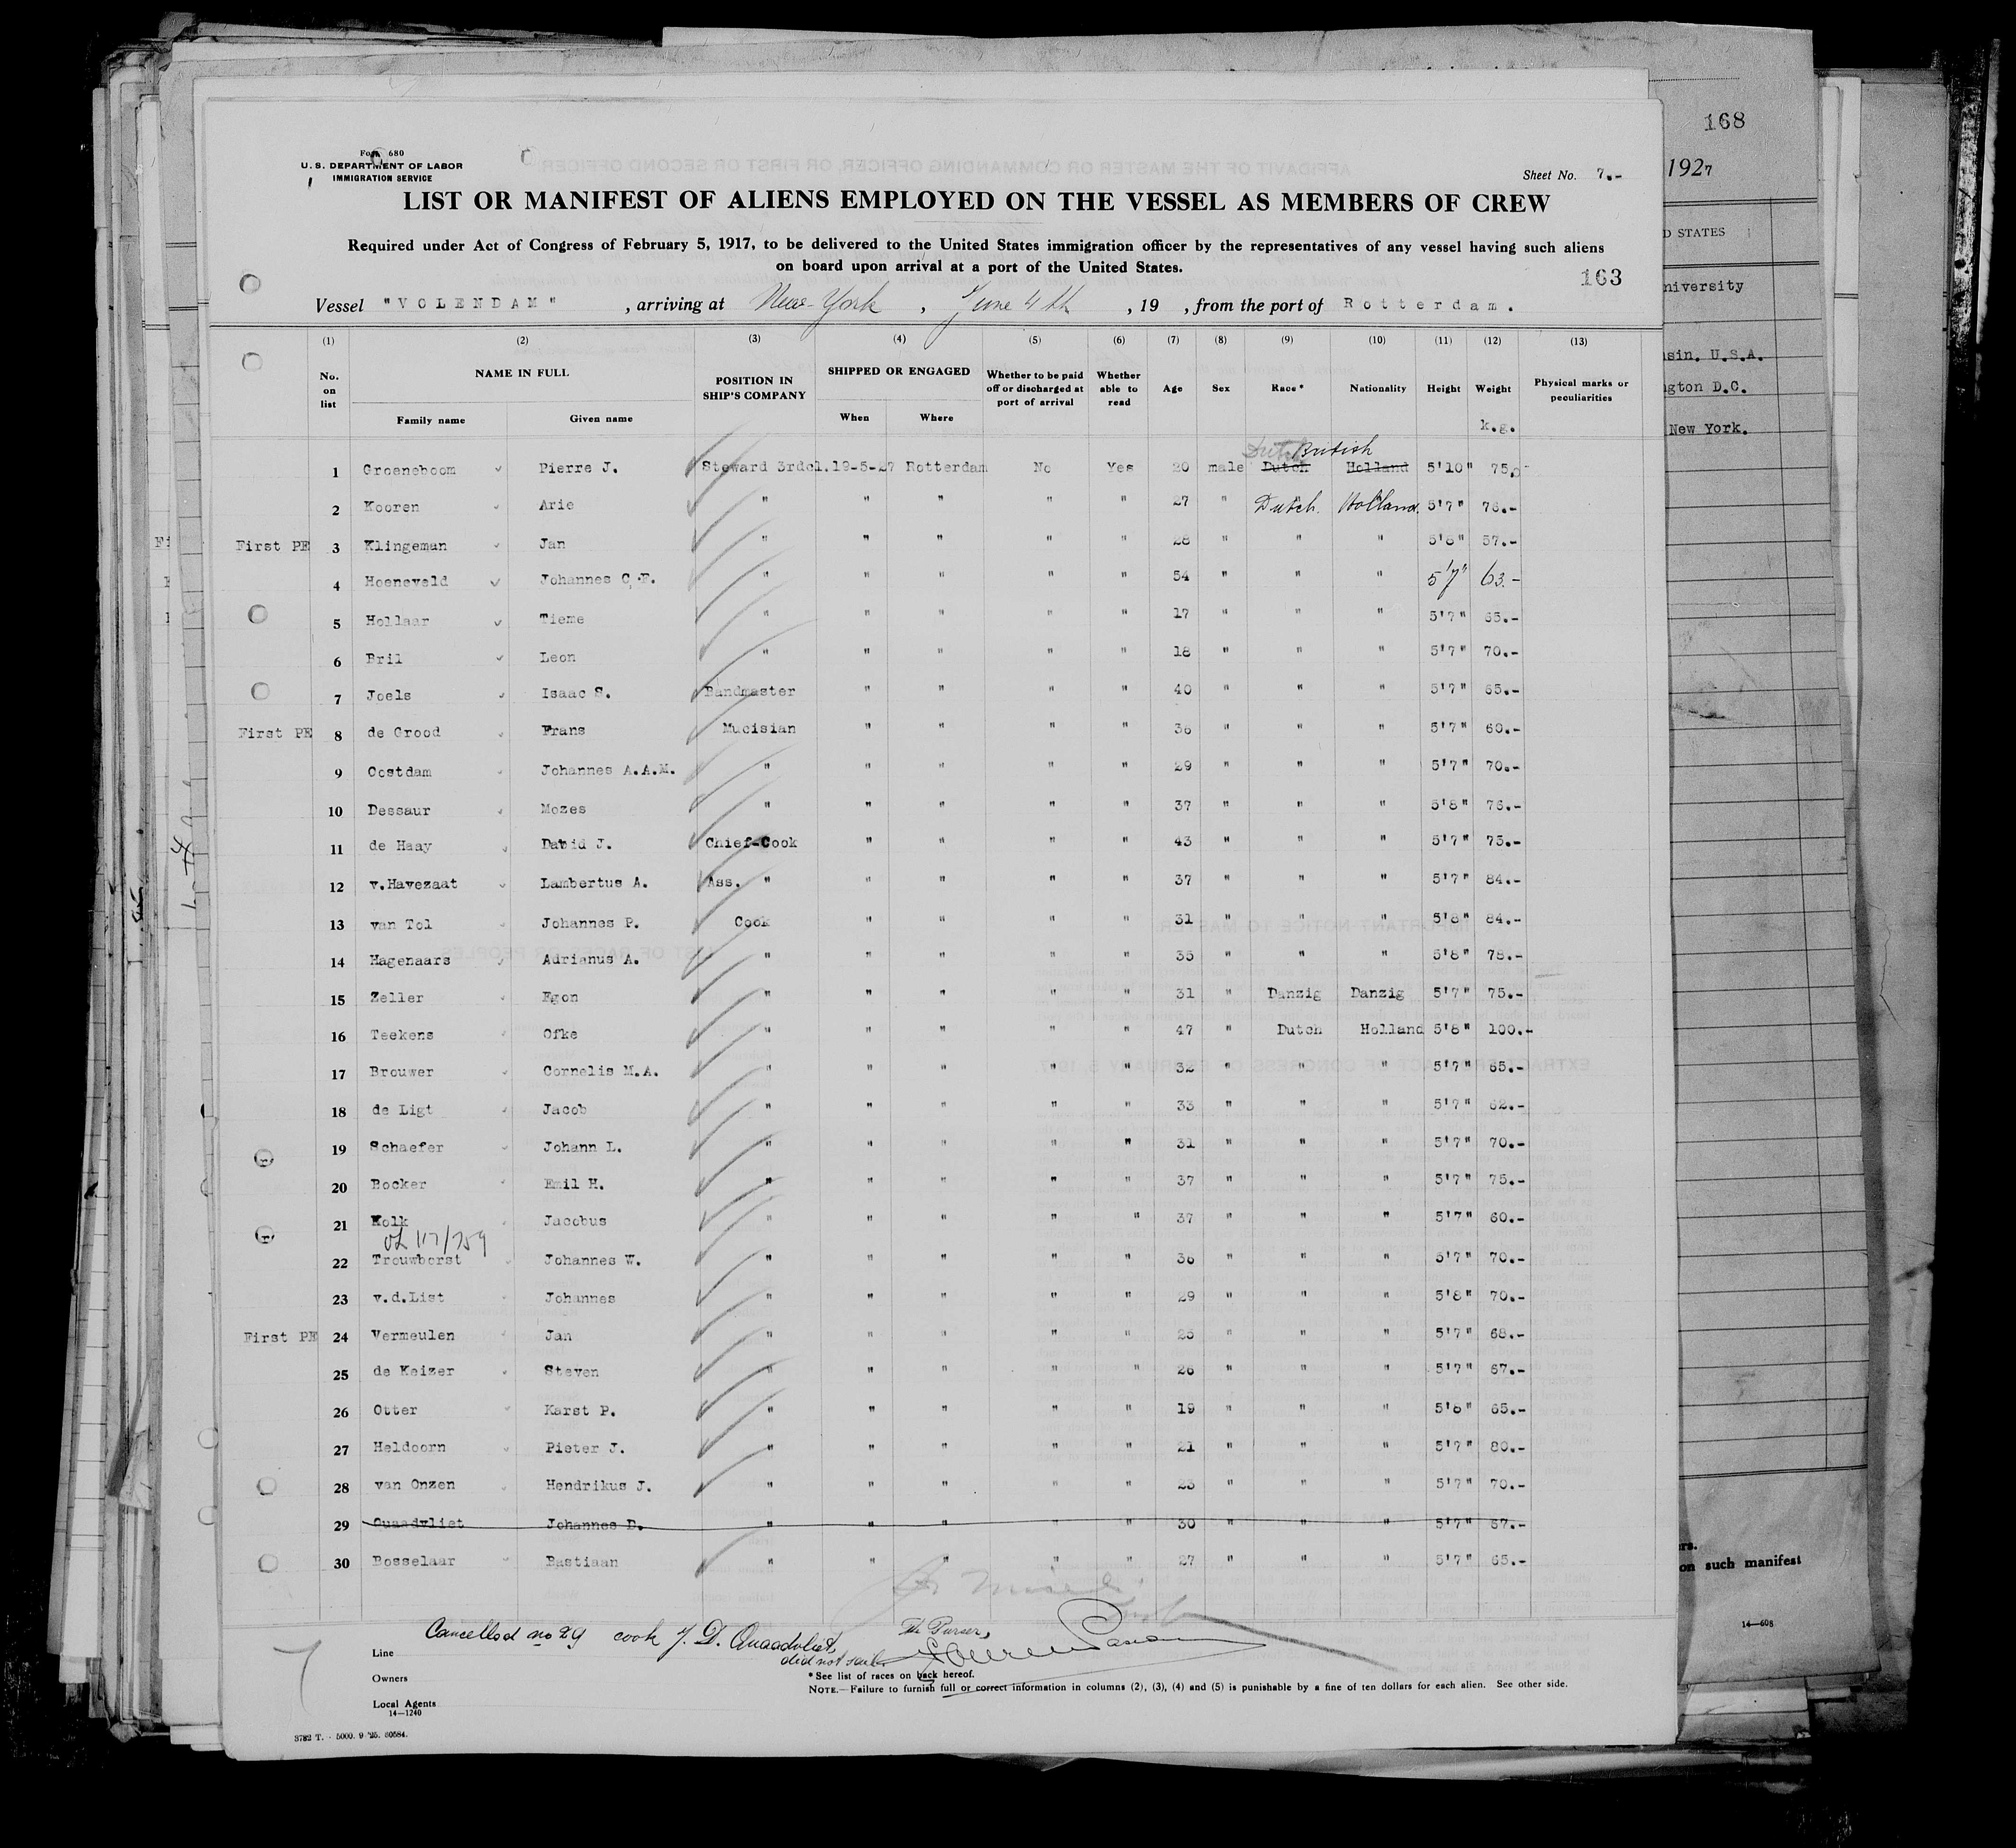 168
1927
D STATES
niversity
sin. U.S.A.
gton D.C.
New York.
rs.
on such manifest
14—608
Form 680
U. S. DEPARTMENT OF LABOR
IMMIGRATION SERVICE
Sheet No. 7.-
LIST OR MANIFEST OF ALIENS EMPLOYED ON THE VESSEL AS MEMBERS OF CREW
Required under Act of Congress of February 5, 1917, to be delivered to the United States immigration officer by the representatives of any vessel having such aliens
on board upon arrival at a port of the United States.
163
Vessel "VOLENDAM", arriving at New-York, June 4th, 19 , from the port of Rotterdam.
(1) (2) (3) (4) (5) (6) (7) (8) (9) (10) (11) (12) (13)
No. on list NAME IN FULL POSITION IN SHIP'S COMPANY SHIPPED OR ENGAGED Whether to be paid off or discharged at port of arrival Whether able to read Age Sex Race* Nationality Height Weight Physical marks or peculiarities
Family name Given name When Where k.g.
Dutch British
1 Groeneboom Pierre J. Steward 3rdcl. 19-5-27 Rotterdam No Yes 20 male Dutch Holland 5'10" 75.-
2 Kooren Arie " " " " " 27 " Dutch. Holland. 5'7" 76.-
First PE 3 Klingeman Jan " " " " " 28 " " " 5'8" 57.-
4 Hoeneveld Johannes C.F. " " " " " 54 " " " 5'7" 63.-
5 Hollaar Tieme " " " " " 17 " " " 5'7" 65.-
6 Bril Leon " " " " " 18 " " " 5'7" 70.-
7 Joels Isaac S. Bandmaster " " " " 40 " " " 5'7" 65.-
First PE 8 de Grood Frans Mucisian " " " " 36 " " " 5'7" 60.-
9 Oostdam Johannes A.A.M. " " " " " 29 " " " 5'7" 70.-
10 Dessaur Mozes " " " " " 37 " " " 5'8" 76.-
11 de Haay David J. Chief-Cook " " " " 43 " " " 5'7" 75.-
12 v.Havezaat Lambertus A. Ass. " " " " " 37 " " " 5'7" 84.-
13 van Tol Johannes P. Cook " " " " 31 " " " 5'8" 84.-
14 Hagenaars Adrianus A. " " " " " 35 " " " 5'8" 78.-
15 Zeller Egon " " " " " 31 " Danzig Danzig 5'7" 75.-
16 Teekens Ofke " " " " " 47 " Dutch Holland 5'8" 100.-
17 Brouwer Cornelis M.A. " " " " " 32 " " " 5'7" 65.-
18 de Ligt Jacob " " " " " 33 " " " 5'7" 62.-
19 Schaefer Johann L. " " " " " 31 " " " 5'7" 70.-
20 Bocker Emil H. " " " " " 37 " " " 5'7" 75.-
21 Kolk Jacobus " " " " " 37 " " " 5'7" 60.-
117/759
22 Trouwborst Johannes W. " " " " " 36 " " " 5'7" 70.-
23 v.d.List Johannes " " " " " 29 " " " 5'8" 70.-
First PE 24 Vermeulen Jan " " " " " 25 " " " 5'7" 68.-
25 de Keizer Steven " " " " " 26 " " " 5'7" 67.-
26 Otter Karst P. " " " " " 19 " " " 5'8" 65.-
27 Heldoorn Pieter J. " " " " " 21 " " " 5'7" 80.-
28 van Onzen Hendrikus J. " " " " " 23 " " " 5'7" 70.-
29 Quaadvliet Johannes D. " " " " " 30 " " " 5'7" 67.-
30 Bosselaar Bastiaan " " " " " 27 " " " 5'7" 65.-
Cancelled no 29 cook J. D. Quaadvliet, The Purser,
did not sail.
7
Line
Owners
Local Agents
14—1240
*See list of races on back hereof.
NOTE.—Failure to furnish full or correct information in columns (2), (3), (4) and (5) is punishable by a fine of ten dollars for each alien. See other side.
3782 T. - 5000. 9 '25. 60584.